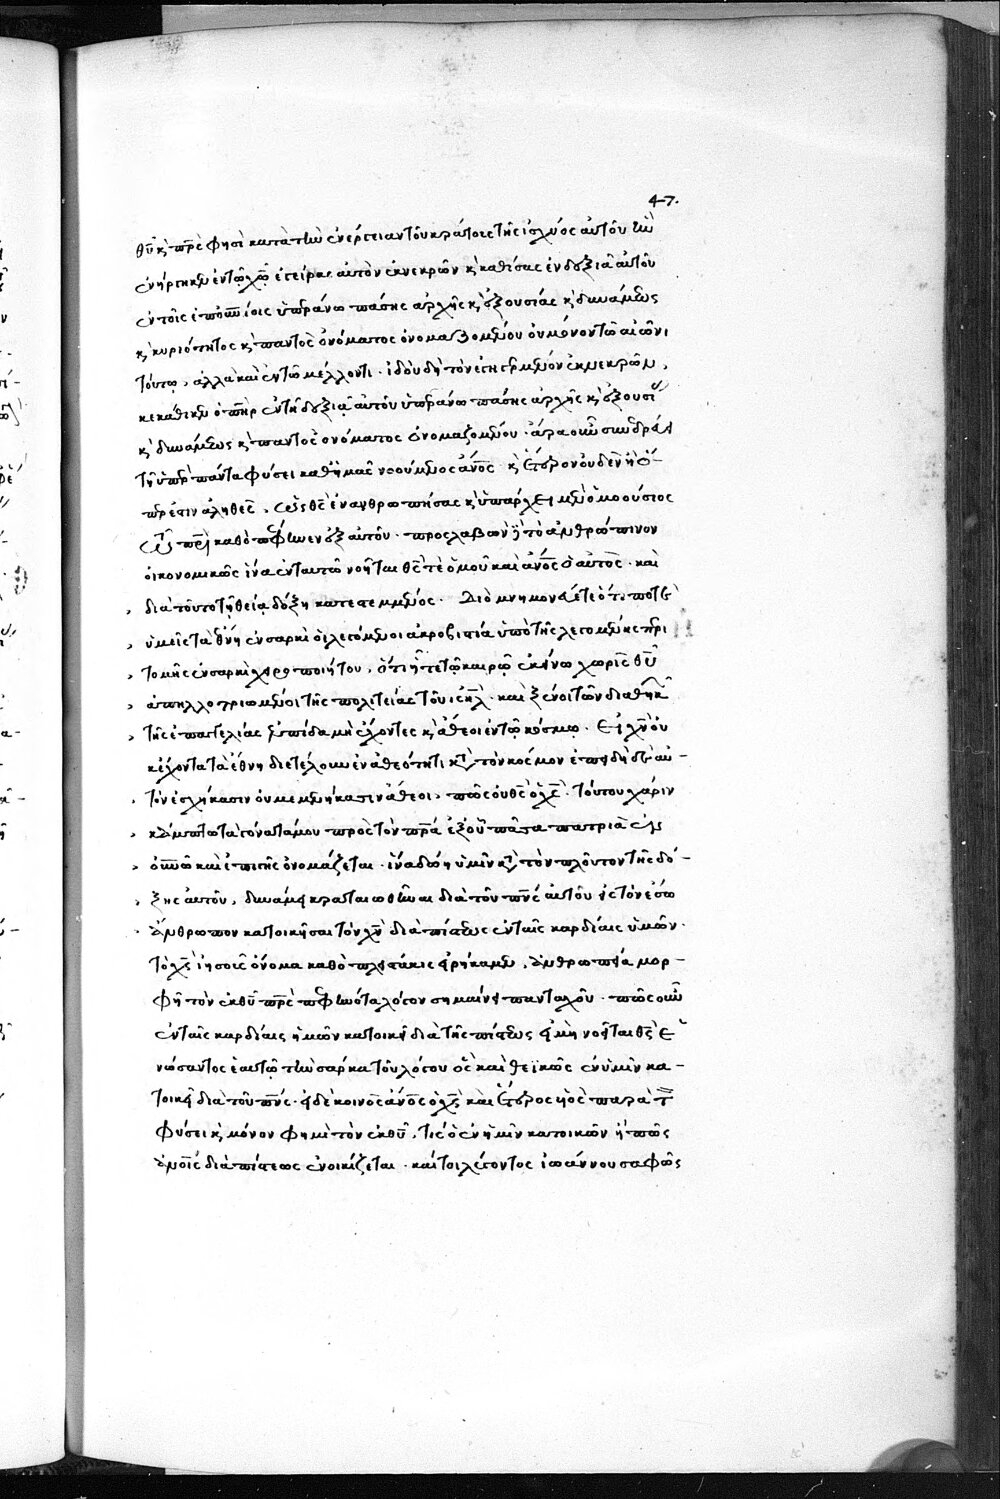 47.
θῦ κ̀ πρ̅ς φησὶ κατὰ τὴν ἐνέργειαν τοῦ κράτους τῆς ἰσχύος αὐτοῦ ἣν
ἐνήργηκεν ἐν τῷ χῷ̅ ἐγείρας αὐτὸν ἐκ νεκρῶν κ̀ καθίσας ἐν δεξιᾷ αὐτοῦ
ἐν τοῖς ἐπουνίοις ὑπεράνω πάσης ἀρχῆς κ̀ ἐξουσίας κ̀ δυνάμεως
κ̀ κυριότητος κ̀ παντὸς ὀνόματος ὀνομαζομένου οὐ μόνον τῷ αἰῶνι
τούτῳ, ἀλλὰ καὶ ἐν τῷ μέλλοντι. ἰδοὺ δὴ τὸν ἐγηγερμένον ἐκ νεκρῶν,
κεκάθικεν ὁ πη̅ρ ἐν τῇ δεξιᾷ αὐτοῦ ὑπεράνω πάσης ἀρχῆς κ̀ ἐξουσί
κ̀ δυνάμεως κ̀ παντὸς ὀνόματος ὀνομαζομένου. ἆρα οὖν συνεδρεύει
τῇ ὑπὲρ πάντα φύσει καθ' ἡμᾶς νοούμενος ἄνο̅ς κ̀ ἕτερον οὐδὲν ἢ ὅ-
περ ἐστὶν ἀληθὲς, ὡς θς̅ ἐνανθρωπήσας κ̀ ὑπάρχει μὲν ὁμοούσιος
τῷ πρ̅ι καθὸ πέφηνεν ἐξ αὐτοῦ. προσλαβὼν δὲ τὸ ἀνθρώπινον
οἰκονομικῶς ἵνα ἐν ταυτῷ νοῆται θς̅ τὲ ὁμοῦ καὶ ἄνο̅ς ὁ αὐτὸς. καὶ
διὰ τοῦτο τῇ θείᾳ δόξῃ κατεστεμμένος. Διὸ μνημονεύετε ὅτι ποτὲ
ὑμεῖς τὰ ἔθνη ἐν σαρκὶ οἱ λεγόμενοι ἀκροβυστία ὑπὸ τῆς λεγομένης περι
τομῆς ἐν σαρκὶ χειροποιήτου, ὅτι ἦτε τῷ καιρῷ ἐκείνῳ χωρὶς θῦ̅
ἀπηλλοτριωμένοι τῆς πολιτείας τοῦ ἰη̅λ. καὶ ξένοι τῶν διαθηκ
τῆς ἐπαγγελίας ἐλπίδα μὴ ἔχοντες κ̀ ἄθεοι ἐν τῷ κόσμῳ. Εἰ χν̅ οὐ
κ ἔχοντα τὰ ἔθνη διετέλουν ἐν ἀθεότητι κατὰ τὸν κόσμον ἐπειδὴ δὲ αὐ-
τὸν ἐσχήκασιν οὐ μεμενήκασιν ἄθεοι, πῶς οὐ θς̅ ὁ χς̅. τούτου χάριν
κάμπτω τὰ γόνατά μου πρὸς τὸν πρ̅α ἐξ οὗ πᾶσα πατριὰ ἐν
οὐνῷ καὶ ἐπὶ γῆς ὀνομάζεται. ἵνα δώῃ ὑμῖν κατὰ τὸν πλοῦτον τῆς δό-
ξης αὐτοῦ, δυνάμει κραταιωθῆναι διὰ τοῦ πν̅ς αὐτοῦ εἰς τὸν ἔσω
ἄνθρωπον κατοικῆσαι τὸν χν̅ διὰ πίστεως ἐν ταῖς καρδίαις ὑμῶν.
τὸ χς̅ ἰησοῦς ὄνομα καθὸ πλειστάκις εἰρήκαμεν, ἀνθρωπεία μορ-
φῇ τὸν ἐκ θῦ̅ πρ̅ς πεφηνότα λόγον σημαίνει πανταχοῦ. πῶς οὖν
ἐν ταῖς καρδίαις ἡμῶν κατοικεῖ διὰ τῆς πίστεως εἰ μὴ νοεῖται θς̅ ἑ
νώσαντος ἑαυτῷ τὴν σάρκα τοῦ λόγου ὃς καὶ θεϊκῶς ἐν ὑμῖν κα-
τοικεῖ διὰ τοῦ πν̅ς. εἰ δὲ κοινὸς ἄνο̅ς ὁ χς̅ καὶ ἕτερος υἱὸς παρὰ τ
φύσει κ̀ μόνον φημὶ τὸν ἐκ θῦ̅, τίς ὁ ἐν ἡμῖν κατοικῶν ἢ πῶς
ἀμοῖς διὰ πίστεως ἐνοικίζεται. καίτοι λέγοντος ἰωάννου σαφῶς